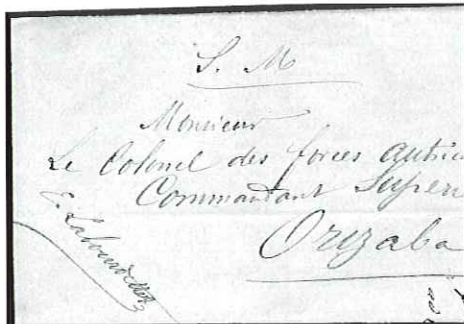 S. M
Monsieur
Le Colonel des forces autri
Commandant Superi
Orizaba